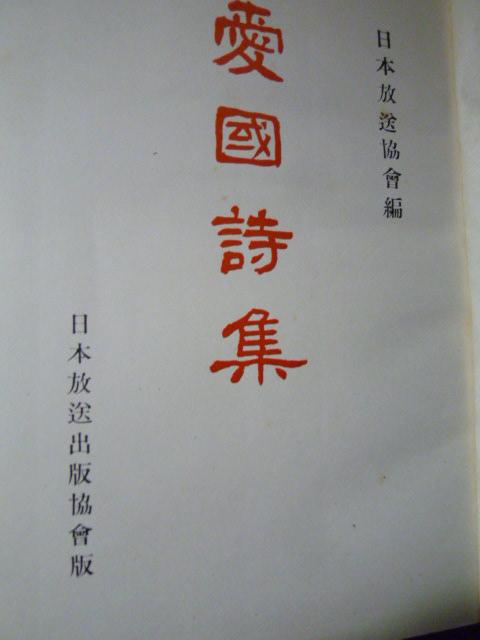 日本放送協會編
愛國詩集
日本放送出版協會版